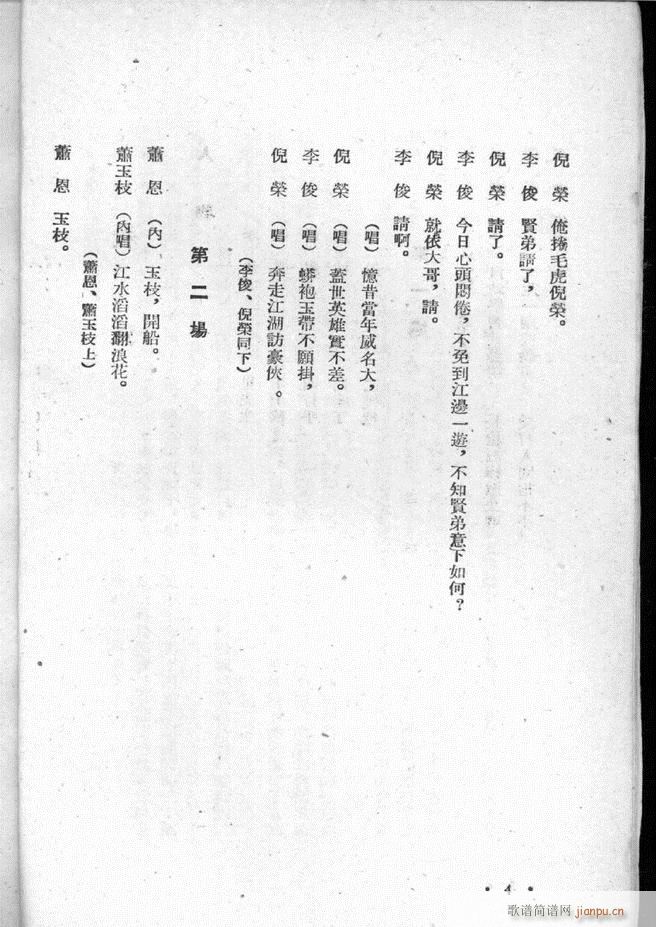 倪榮 俺捲毛虎倪榮。
李俊 賢弟請了，
倪榮 請了。
李俊 今日心頭悶倦，不免到江邊一遊，不知賢弟意下如何？
倪榮 就依大哥，請。
李俊 請啊。
（唱）憶昔當年威名大，
倪榮（唱）蓋世英雄實不差。
李俊（唱）蟒袍玉帶不願掛，
倪榮（唱）奔走江湖訪豪俠。
（李俊、倪榮同下）
第二場
蕭恩（內）玉枝，開船。
蕭玉枝（內唱）江水滔滔翻浪花。
（蕭恩、蕭玉枝上）
蕭恩 玉枝。
·4·
歌谱简谱网 jianpu.cn